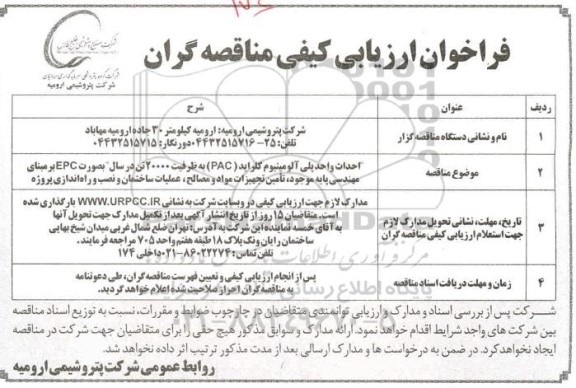 فراخوان ارزیابی کیفی مناقصه گران
شرکت پتروشیمی ارومیه
ردیف
عنوان
شرح
۱
نام و نشانی دستگاه مناقصه گزار
شرکت پتروشیمی ارومیه: ارومیه کیلومتر ۳۰ جاده ارومیه مهاباد
تلفن: ۲۵-۰۴۴۳۲۵۱۵۷۱۶ دورنگار: ۰۴۴۳۲۵۱۵۷۱۵
۲
موضوع مناقصه
"احداث واحد پلی آلومینیوم کلراید (PAC) به ظرفیت ۲۰۰۰۰ تن در سال" بصورت EPC بر مبنای
مهندسی پایه موجود، تأمین تجهیزات مواد و مصالح، عملیات ساختمان و نصب و راه اندازی پروژه
۳
تاریخ، مهلت، نشانی تحویل مدارک لازم
جهت استعلام ارزیابی کیفی مناقصه گران
مدارک لازم جهت ارزیابی کیفی در وبسایت شرکت به نشانی WWW.URPCC.IR بارگذاری شده
است. متقاضیان ۱۵ روز از تاریخ انتشار آگهی بعد از تکمیل مدارک جهت تحویل آنها
به آقای خمسه نماینده این شرکت به آدرس: تهران ضلع شمال غربی میدان شیخ بهایی
ساختمان رایان ونک پلاک ۱۸ طبقه هفتم واحد ۷۰۵ مراجعه فرمایند.
تلفن تماس: ۸۶۰۲۲۲۷۴-۰۲۱ داخلی ۱۷۴
۴
زمان و مهلت دریافت اسناد مناقصه
پس از انجام ارزیابی کیفی و تعیین فهرست مناقصه گران، طی دعوتنامه
به مناقصه گران احراز صلاحیت شده اعلام خواهد گردید.
شرکت پس از بررسی اسناد و مدارک و ارزیابی توانمندی متقاضیان در چارچوب ضوابط و مقررات، نسبت به توزیع اسناد مناقصه
بین شرکت های واجد شرایط اقدام خواهد نمود. ارائه مدارک و سوابق مذکور هیچ حقی را برای متقاضیان جهت شرکت در مناقصه
ایجاد نخواهد کرد. در ضمن به درخواست ها و مدارک ارسالی بعد از مدت مذکور ترتیب اثر داده نخواهد شد.
روابط عمومی شرکت پتروشیمی ارومیه